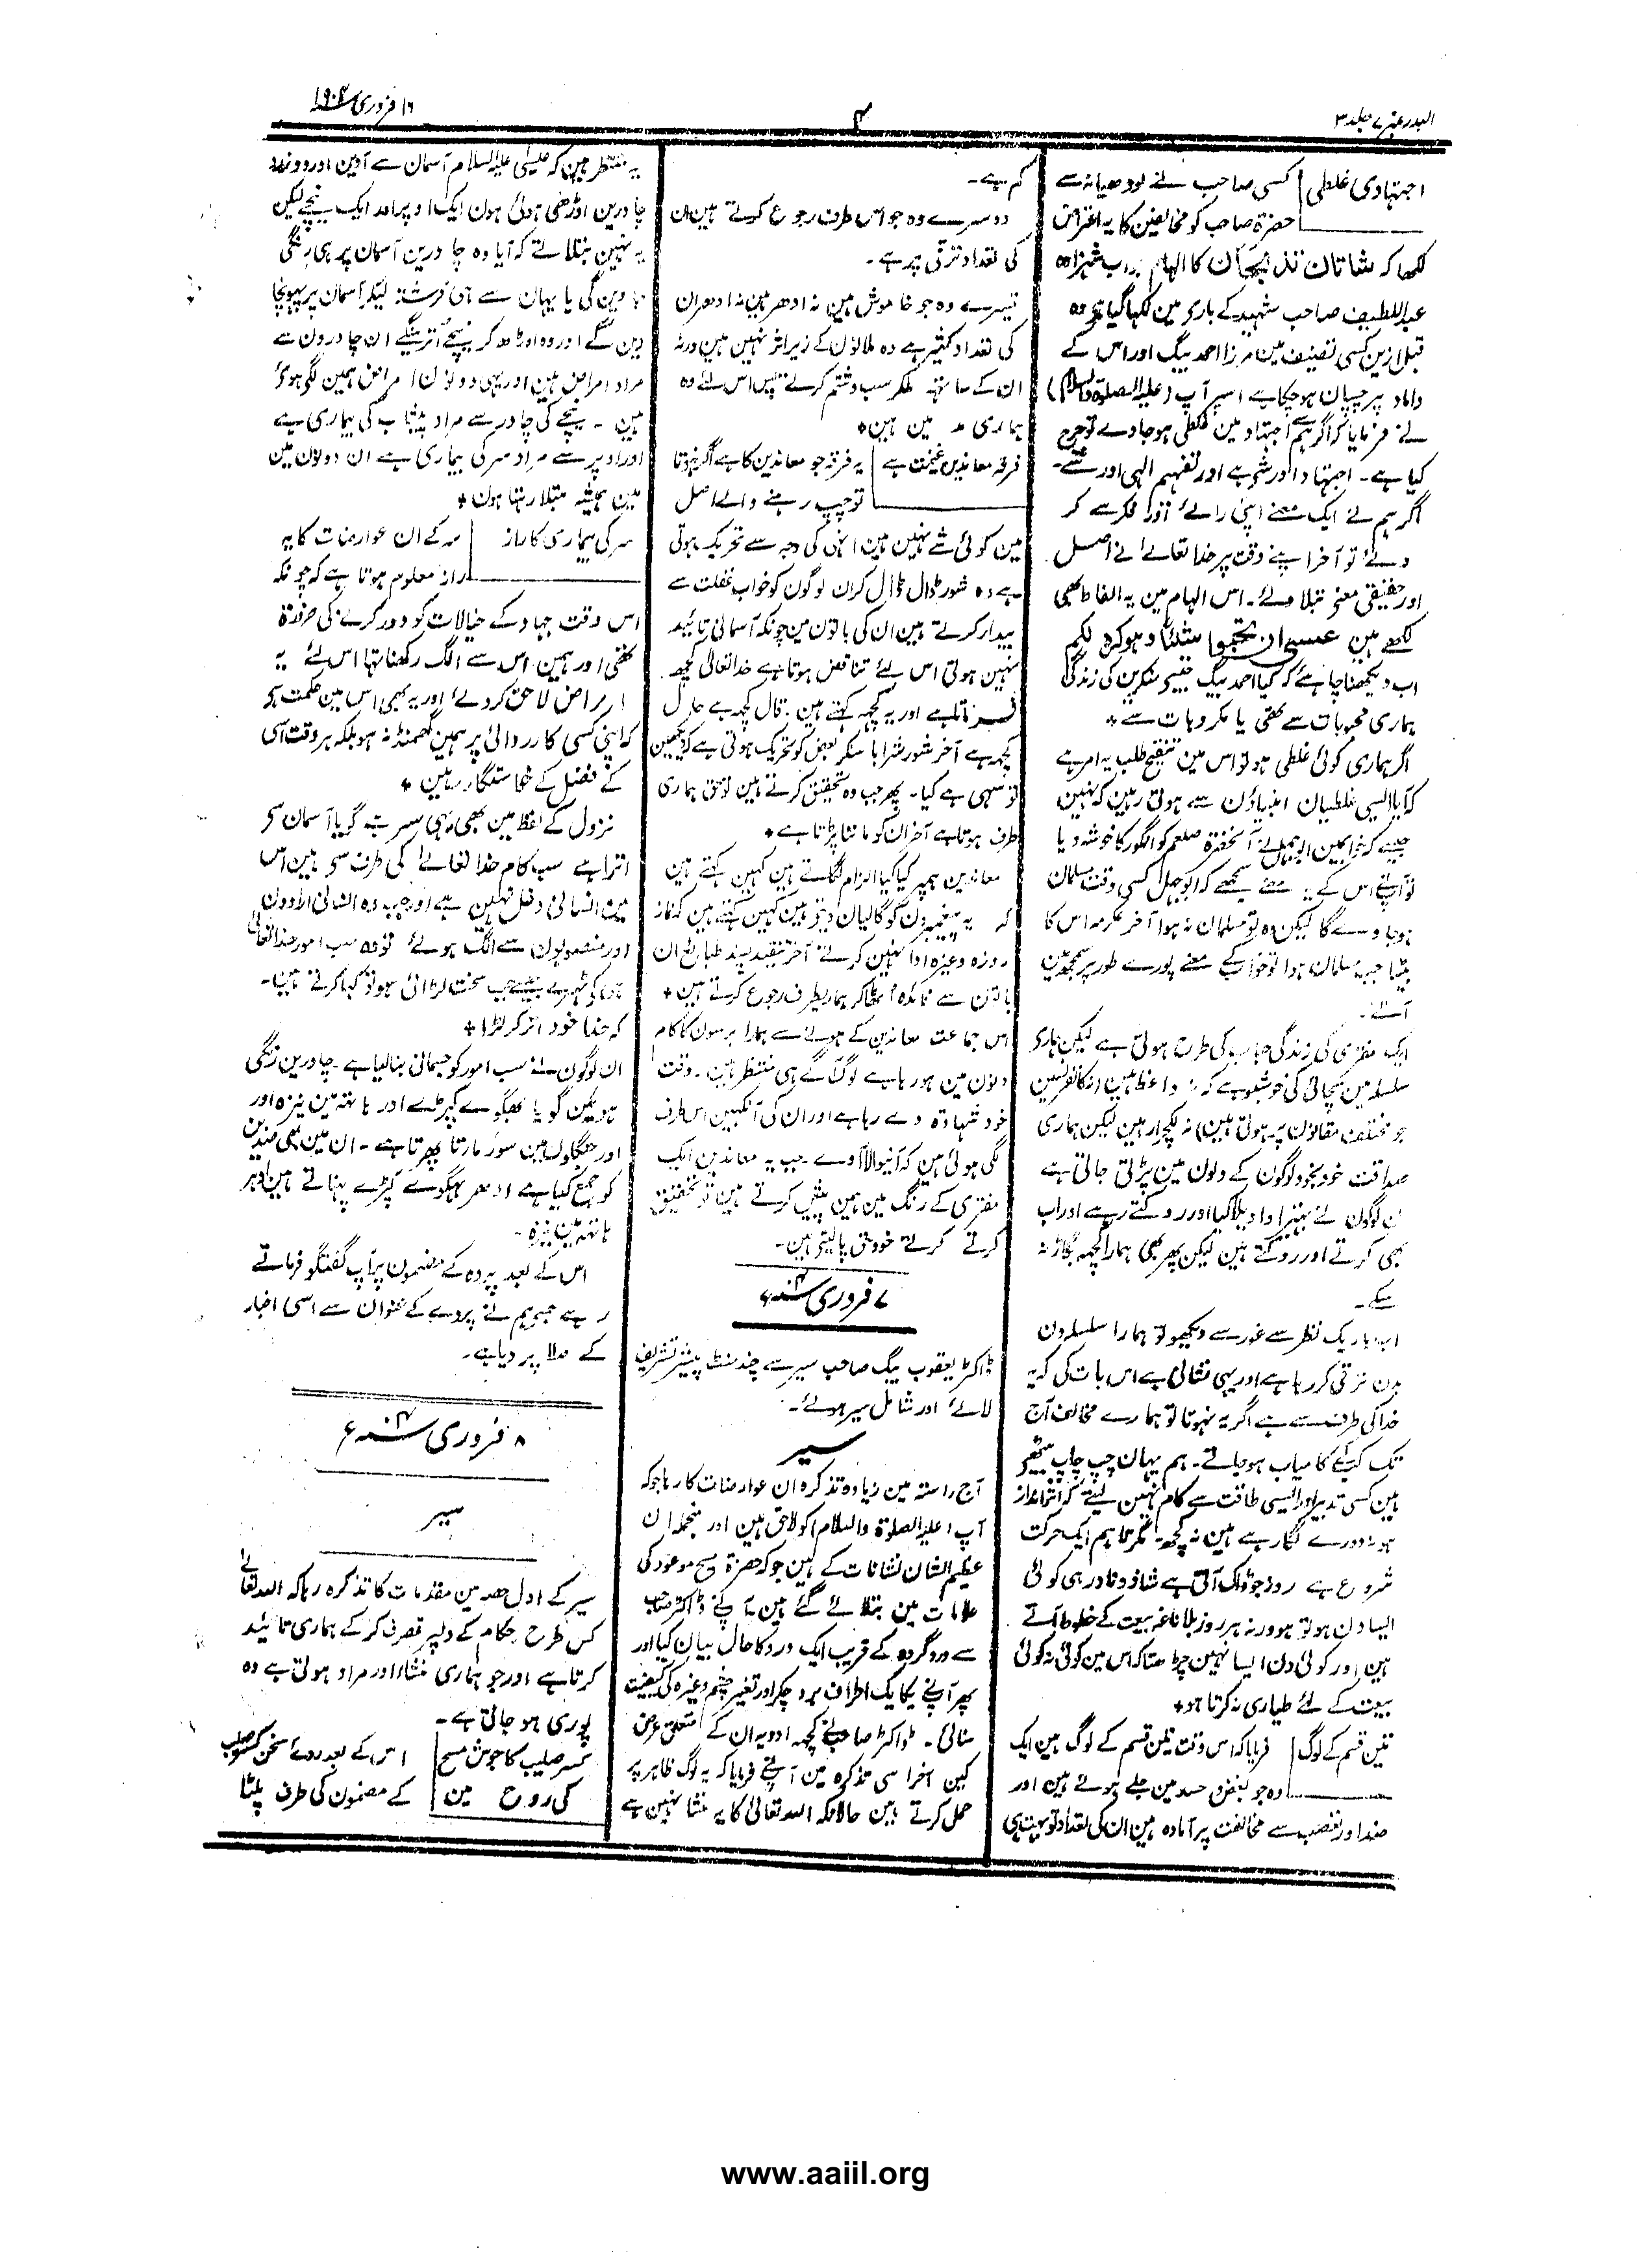 البدر نمبر ۷ جلد ۳
۴
۱۶ فروری ۱۹۰۴ء
اجتہادی غلطی کسی صاحب نے لودھیانہ سے
حضرۃ صاحب کو مخالفین کا یہ اعتراض
لکھا کہ شاتان تذبحان کا الہام اب شہزادہ
عبداللطیف صاحب شہید کے بارہ مین لکھا گیا ہے وہ
قبل ازین کسی تصنیف مین مرزا احمد بیگ اور اس کے
داماد پر چسپان ہو چکا ہے اسپر آپ (علیہ الصلوۃ والسلام)
نے فرمایا کہ اگر ہم سے اجتہاد مین غلطی ہو جاوے تو حرج
کیا ہے۔ اجتہاد اور شے ہے اور تفہیم الٰہی اور شے۔
اگر ہم نے ایک معنے اپنی رائے اور فکر سے کر
دئے تو آخر اپنے وقت پر خدا تعالےٰ نے اصل
اور حقیقی معنے بتلا دئے۔ اس الہام مین یہ الفاظ بھی
لکھے ہین عسىٰ ان تحبوا شیئا وھو کرہ لکم
اب دیکھنا چاہئے کہ کیا احمد بیگ جیسے منکرین کی زندگی
ہماری محبوبات سے تھی یا مکروہات سے ٭
اگر ہماری کوئی غلطی ہو تو اس مین تنقیح طلب یہ امر ہے
کہ آیا ایسی غلطیان انبیاؤن سے ہوتی رہین کہ نہین
جیسے کہ خواب مین ابوجہل نے آنحضرۃ صلعم کو انگور کا خوشہ دیا
تو آپنے اس کے یہ معنے سمجھے کہ ابوجہل کسی وقت مسلمان
ہو جاوے گا لیکن وہ تو مسلمان نہ ہوا آخر عکرمہ اس کا
بیٹا جب مسلمان ہوا تو خواب کے معنے پورے طور پر سمجھ مین
آئے۔
ایک مفتری کی زندگی حباب کی طرح ہوتی ہے لیکن ہماری
سلسلہ مین سچائی کی خوشبو ہے کہ نہ واعظ ہین نہ کانفرنسین
جو مختلف مقاموں پر ہوتی ہین نہ لکچرار ہین لیکن ہماری
صداقت خود بخود لوگون کے دلون مین پڑتی جاتی ہے
ان لوگون نے بہتیرا واویلا کیا اور روکتے رہے اور اب
بھی کرتے اور روکتے ہین لیکن پھر بھی ہمارا کچھ بگاڑ نہ
سکے۔
اب باریک نظر سے غور سے دیکھو تو ہمارا سلسلہ دن
بدن ترقی کر رہا ہے اور یہی نشانی ہے اس بات کی کہ یہ
خدا کی طرف سے ہے اگر یہ نہوتا تو ہمارے مخالف آج
تک کب کے کامیاب ہو جاتے۔ ہم یہان چپ چاپ بیٹھے
ہین کسی تدبیر اور ایسی طاقت سے کام نہین لیتے کہ اثر انداز
ہو نہ دورے لگا رہے ہین نہ کچھ۔ مگر تاہم ایک حرکت
شروع ہے روز جو ڈاک آتی ہے شاذ و نادر ہی کوئی
ایسا دن ہو تو ہو ورنہ ہر روز بلا ناغہ بیعت کے خطوط آتے
ہین اور کوئی دن ایسا نہین چڑھتا کہ اس مین کوئی نہ کوئی
بیعت کے لئے طیاری نہ کرتا ہو٭
تین قسم کے لوگ فرمایا کہ اس وقت تین قسم کے لوگ ہین ایک
وہ جو بغض حسد مین جلے ہوئے ہین اور
ضد اور تعصب سے مخالفت پر آمادہ ہین ان کی تعداد تو بہت ہی
کم ہے۔
دوسرے وہ جو اس طرف رجوع کرتے ہین ان
کی تعداد ترقی پر ہے۔
تیسرے وہ جو خاموش ہین نہ ادھر ہین نہ ادھر ان
کی تعداد کثیر ہے وہ ملانون کے زیر اثر نہین ہین ورنہ
ان کے ساتھ ملکر سب و شتم کرتے پس اس لئے وہ
ہماری مد مین ہین٭
فرقہ معاندین غنیمت ہے یہ فرقہ جو معاندین کا ہے اگر نہ ہوتا
تو چپ رہنے والے اصل
مین کوئی شے نہین ہین انہی کی وجہ سے تحریک ہوتی
ہے وہ شور ڈال ڈال کر ان لوگون کو خواب غفلت سے
بیدار کرتے ہین ان کی باتون مین چونکہ آسمانی تائید
نہین ہوتی اس لئے تناقض ہوتا ہے خدا تعالیٰ کچھ
فرماتا ہے اور یہ کچھ کہتے ہین۔ قال کچھ ہے حال
کچھ ہے آخر شور شرابا سنکر بعض کو تحریک ہوتی ہے کہ دیکھین
تو سہی ہے کیا۔ پھر جب وہ تحقیق کرتے ہین تو حق ہماری
طرف ہوتا ہے آخر ان کو ماننا پڑتا ہے ٭
معاندین ہمپر کیا کیا الزام لگاتے ہین کہین کہتے ہین
کہ یہ پیغمبرون کو گالیان دیتے ہین کہین کہتے ہین کہ نماز
روزہ وغیرہ ادا نہین کرتے آخر تنقید پسند طبائع ان
باتون سے فائدہ اٹھا کر ہماری طرف رجوع کرتے ہین ٭
اس جماعت معاندین کے ہونے سے ہمارا برسون کا کام
دنون مین ہو رہا ہے لوگ آگے ہی منتظر ہین۔ وقت
خود شہادۃ دے رہا ہے اور ان کی آنکھین اس طرف
لگی ہوئی ہین کہ آنیوالا آوے۔ جب یہ معاندین ایک
مفتری کے رنگ مین ہمین پیش کرتے ہین تو تحقیق
کرتے کرتے خود حق پا لیتے ہین۔
۷ فروری ۱۹۰۴ء
ڈاکٹر یعقوب بیگ صاحب سیر سے چند منٹ پیشتر تشریف
لائے اور شامل سیر ہوئے۔
سیر
آج راستہ مین زیادہ تذکرہ ان عوارضات کا رہا جو کہ
آپ (علیہ الصلوۃ والسلام) کو لاحق ہین اور منجملہ ان
عظیم الشان نشانات کے ہین جو کہ حضرۃ مسیح موعود کی
علامات مین بتلائے گئے ہین آپ نے ڈاکٹر صاحب
سے درد گردہ کے قریب ایک درد کا حال بیان کیا اور
پھر آپنے یکایک اطراف سرد چکر اور تغیر چشم وغیرہ کی کیفیت
سنائی۔ ڈاکٹر صاحب نے کچھ ادویہ ان کے متعلق عرض
کین آخر اسی تذکرہ مین آپنے فرمایا کہ یہ لوگ ظاہر پر
حمل کرتے ہین حالانکہ اللہ تعالیٰ کا یہ منشا نہین ہے
یہ منتظر ہین کہ عیسیٰ علیہ السلام آسمان سے آوین اور دو زرد
چادرین اوڑھی ہوئی ہون ایک اوپر اور ایک نیچے لیکن
یہ نہین بتلاتے کہ آیا وہ چادرین آسمان پر ہی رنگی
جاوین گی یا یہان سے ہی فرشتہ لیکر آسمان پر پہونچا
دین گے اور وہ اوڑھ کر نیچے اترینگے ان چادرون سے
مراد امراض ہین اور یہی دونون امراض ہمین لگی ہوئی
ہین۔ نیچے کی چادر سے مراد پیشاب کی بیماری ہے
اور اوپر سے مراد سر کی بیماری ہے ان دونون مین
مین ہمیشہ مبتلا رہتا ہون ٭
سر کی بیماری کا راز سر کے ان عوارضات کا یہ
راز معلوم ہوتا ہے کہ چونکہ
اس وقت جہاد کے خیالات کو دور کرنے کی ضرورۃ
تھی اور ہمین اس سے الگ رکھنا تھا اس لئے یہ
امراض لاحق کر دئے اور یہ بھی اس مین حکمت ہے
کہ اپنی کسی کارروائی پر ہمین گھمنڈ نہ ہو بلکہ ہر وقت اسی
کے فضل کے خواستگار رہین ٭
نزول کے لفظ مین بھی یہی سر ہے گویا آسمان سے
اترا ہے سب کام خدا تعالےٰ کی طرف سے ہین اس
مین انسانی دخل نہین ہے اور جب وہ انسانی ارادون
اور منصوبون سے الگ ہوئے تو وہ سب امور خدا تعالیٰ
ہی کے ٹھہرے جیسے جب سخت لڑائی ہو تو کہا کرتے ہین۔
کہ خدا خود اتر کر لڑا ٭
ان لوگون نے سب امور کو جسمانی بنا لیا ہے۔ چادرین رنگی
ہوئین گویا بھگوے کپڑے اور ہاتھ مین نیزہ اور
اور جنگلون مین سور مارتا پھرتا ہے۔ ان مین بھی ضدین
کو جمع کیا ہے ادھر بھگوے کپڑے پہناتے ہین ادھر
ہاتھ مین نیزہ۔
اس کے بعد پردہ کے مضمون پر آپ گفتگو فرماتے
رہے جسے ہم نے پردے کے عنوان سے اسی اخبار
کے صلا پر دیا ہے۔
۸ فروری ۱۹۰۴ء
سیر
سیر کے اول حصہ مین مقدمات کا تذکرہ رہا کہ اللہ تعالےٰ
کس طرح حکام کے دلپر تصرف کر کے ہماری تائید
کرتا ہے اور جو ہماری منشاء اور مراد ہوتی ہے وہ
پوری ہو جاتی ہے۔
کسر صلیب کا جوش مسیح کی روح مین اس کے بعد روئے سخن کسر صلیب
کے مضمون کی طرف پلٹا
www.aaiil.org